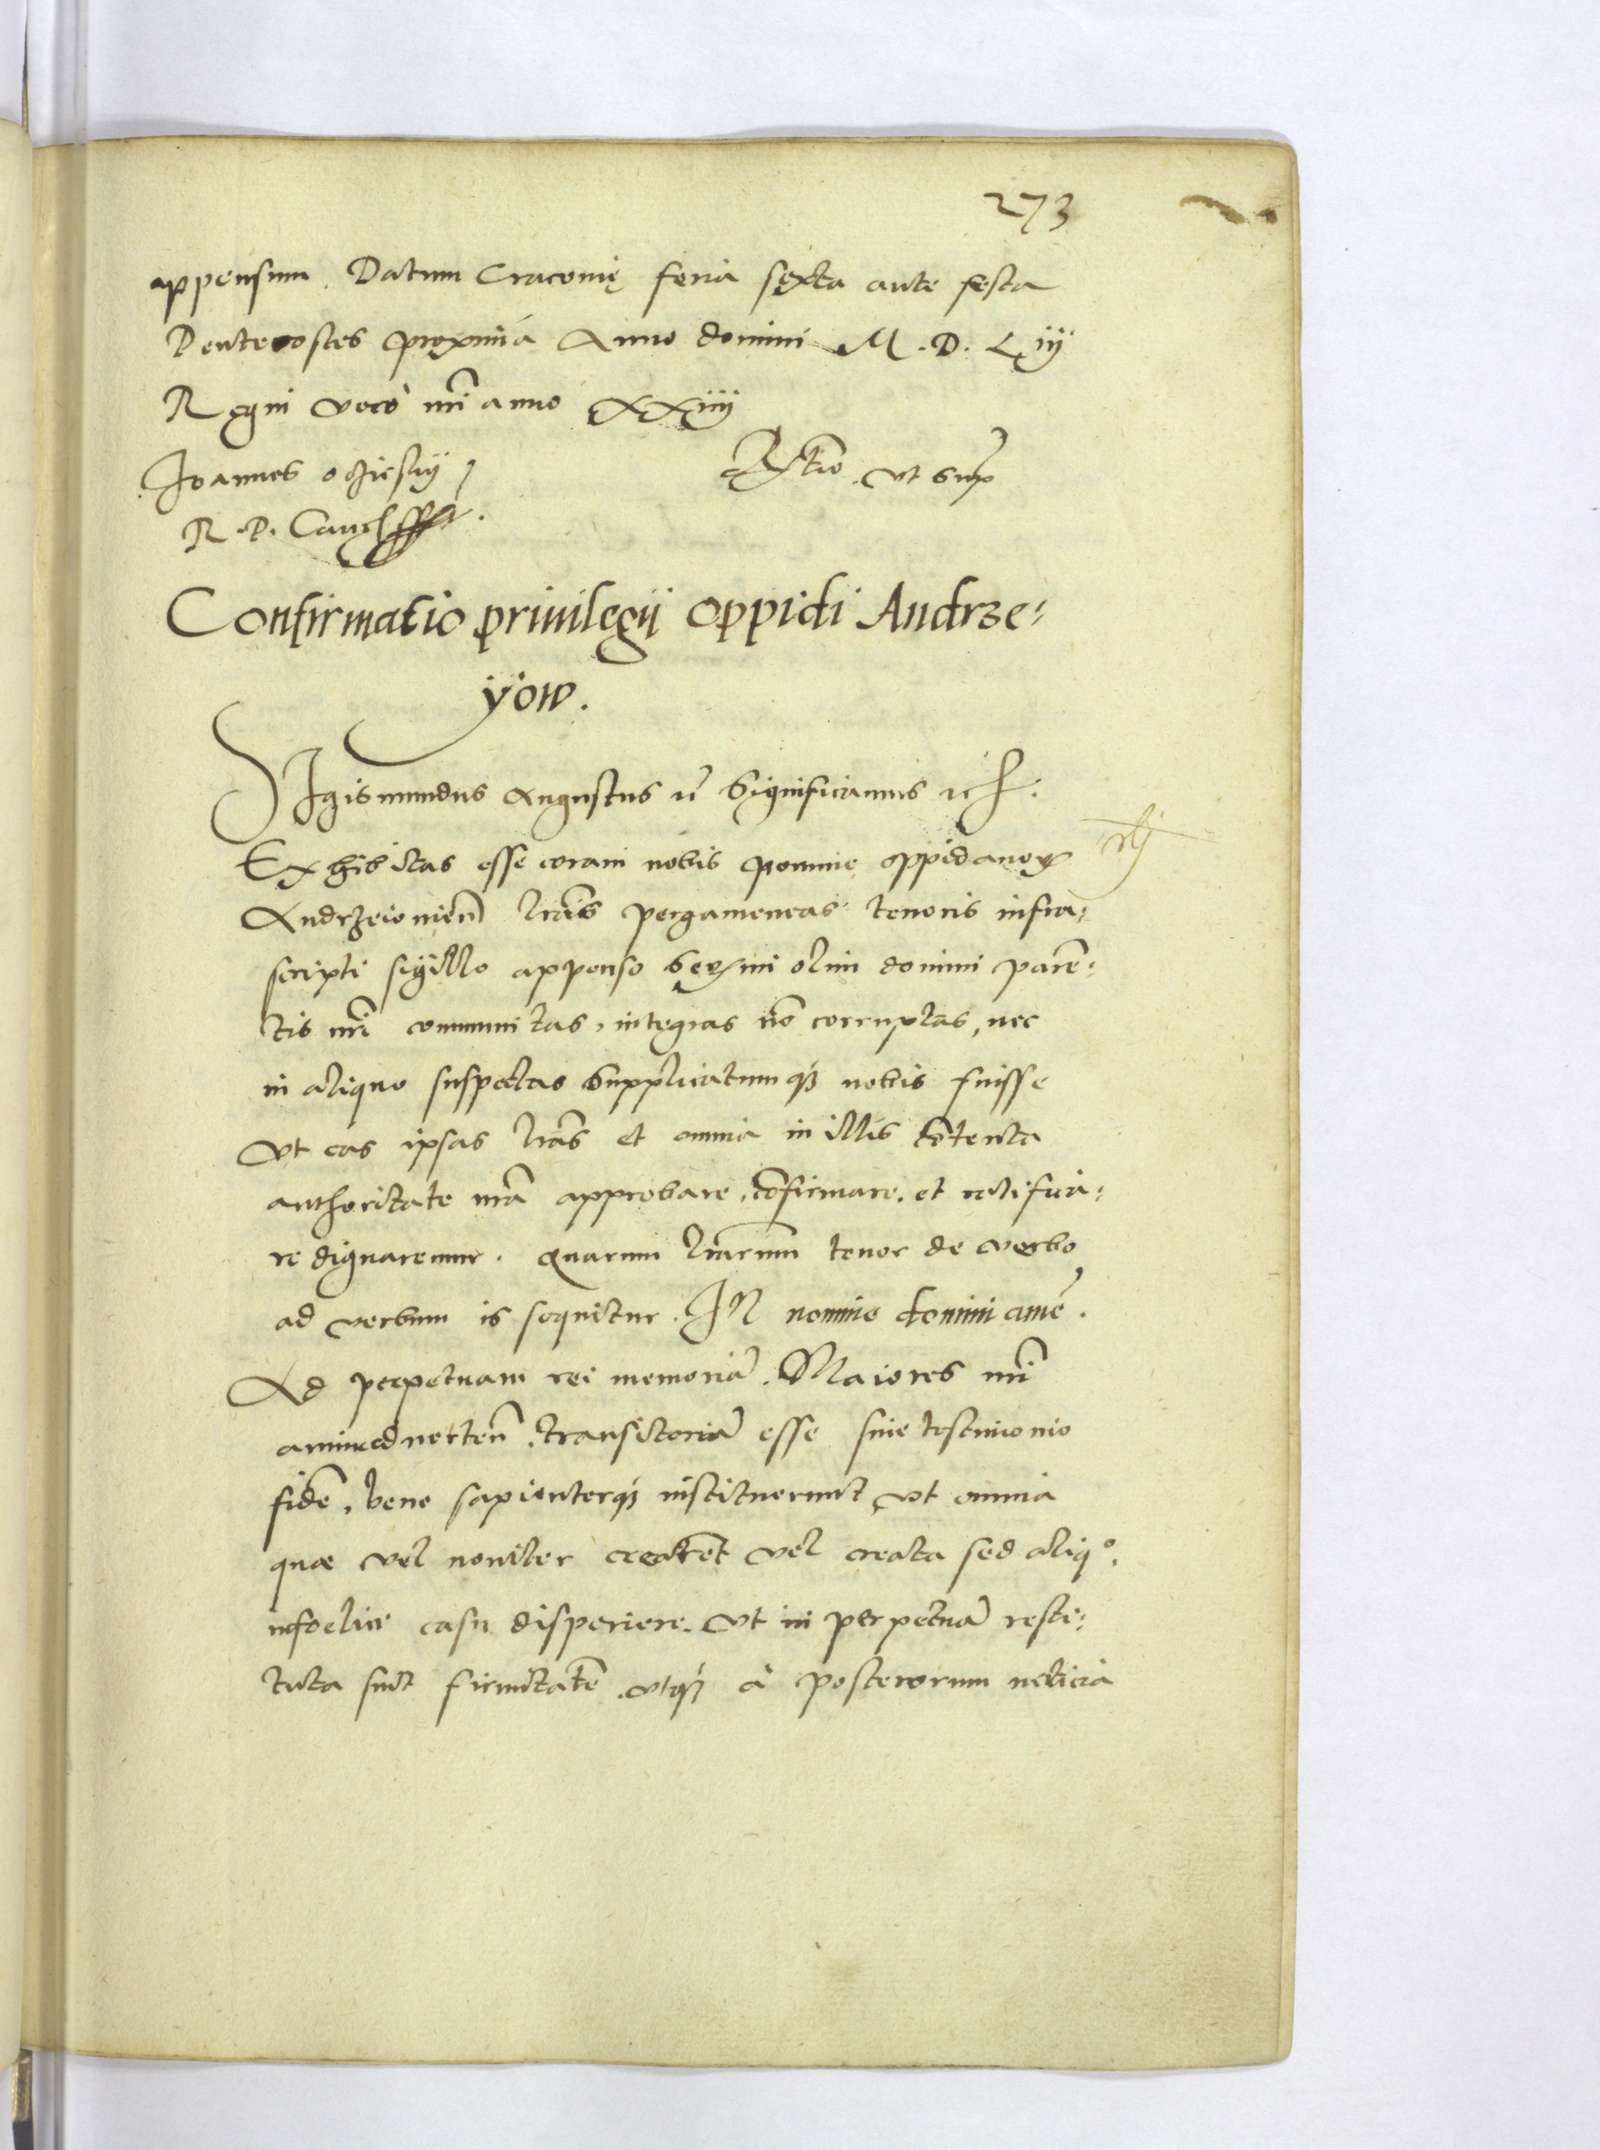 273
appensum. Datum Cracovię feria sexta ante festa
Pentecostes proxima Anno domini M. D. Liij
Regni vero nri anno XXiiij
Joannes ocziesky
Rtio ut sup
R. P. Canc
Confirmatio privilegij oppidi Andrze-
yow.
SIgismundus Augustus rc Significamus rc
Exhibitas esse coram nobis nomine oppidanoꝝ
Andrzeiovien lras pergameneas tenoris infra-
scripti sigillo appenso Sermi olim domini paren-
tis nri communitas, integras no corruptas, nec
in aliquo suspectas Supplicatumqꝫ nobis fuisse
Vt eas ipsas lras et omnia in illis cotenta
authoritate nra approbare, cofirmare, et ratifica-
re dignaremur. Quarum lrarum tenor de verbo
ad verbum is sequitur. IN nomine domini ame.
Ad perpetuam rei memoria. Maiores nri
animadverten, transitoria esse sine testimonio
fide, bene sapienterqꝫ instituerunt ut omnia
quæ vel noviter crearent vel creata sed aliqo.
infoelice casu disperiere. Vt in perpetua resti-
tuta sint firmitate, utqꝫ à posterorum noticia